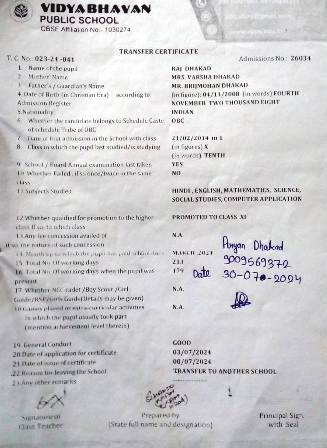 VIDYA BHAVAN
PUBLIC SCHOOL
CBSE Affiliation No:- 1030274
TRANSFER CERTIFICATE
T. C. No: 023-24-041 Admissions No: 26034
1. Name of the pupil RAJ DHAKAD
2. Mother Name MRS. VARSHA DHAKAD
3. Father's / Guardian's Name MR. BRIJMOHAN DHAKAD
4. Date of Birth (in Christian Era) according to (in figure): 04/11/2008 (in words) FOURTH
Admission Register NOVEMBER TWO THOUSAND EIGHT
5. Nationality INDIAN
6. Whether the candidate belongs to Schedule Caste OBC
of schedule Tribe of OBC
7. Date of first admission in the School with class 21/02/2014 in 1
8. Class in which the pupil last studied/is studying (in figures) X
(in words) TENTH
9. School / Board Annual examination last taken YES
10. Whether Failed, if so once/twice in the same NO
class
11. Subjects Studied HINDI, ENGLISH, MATHEMATICS, SCIENCE,
SOCIAL STUDIES, COMPUTER APPLICATION
12. Whether qualified for promotion to the higher PROMOTED TO CLASS XI
class if so, to which class
13. Any fee concession availed of N.A
if so, the nature of such concession
14. Month up to which the pupil has paid school dues MARCH 2024
15. Total No. Of working days 213
16. Total No. Of working days when the pupil was 179
present
Dhakad
9009569372
Date 30-07-2024
17. Whether NCC cadet/Boy Scout/Girl N.A.
Guide(Details may be given)
18. Games played or extra curricular activities N.A.
in which the pupil usually took part
(mention achievement level therein)
19. General Conduct GOOD
20. Date of application for certificate 03/07/2024
21. Date of issue of certificate 00/07/2024
22. Reason for leaving the School TRANSFER TO ANOTHER SCHOOL
23. Any other remarks
Signature of Prepared by Principal Sign
Class Teacher (State full name and designation) with Seal